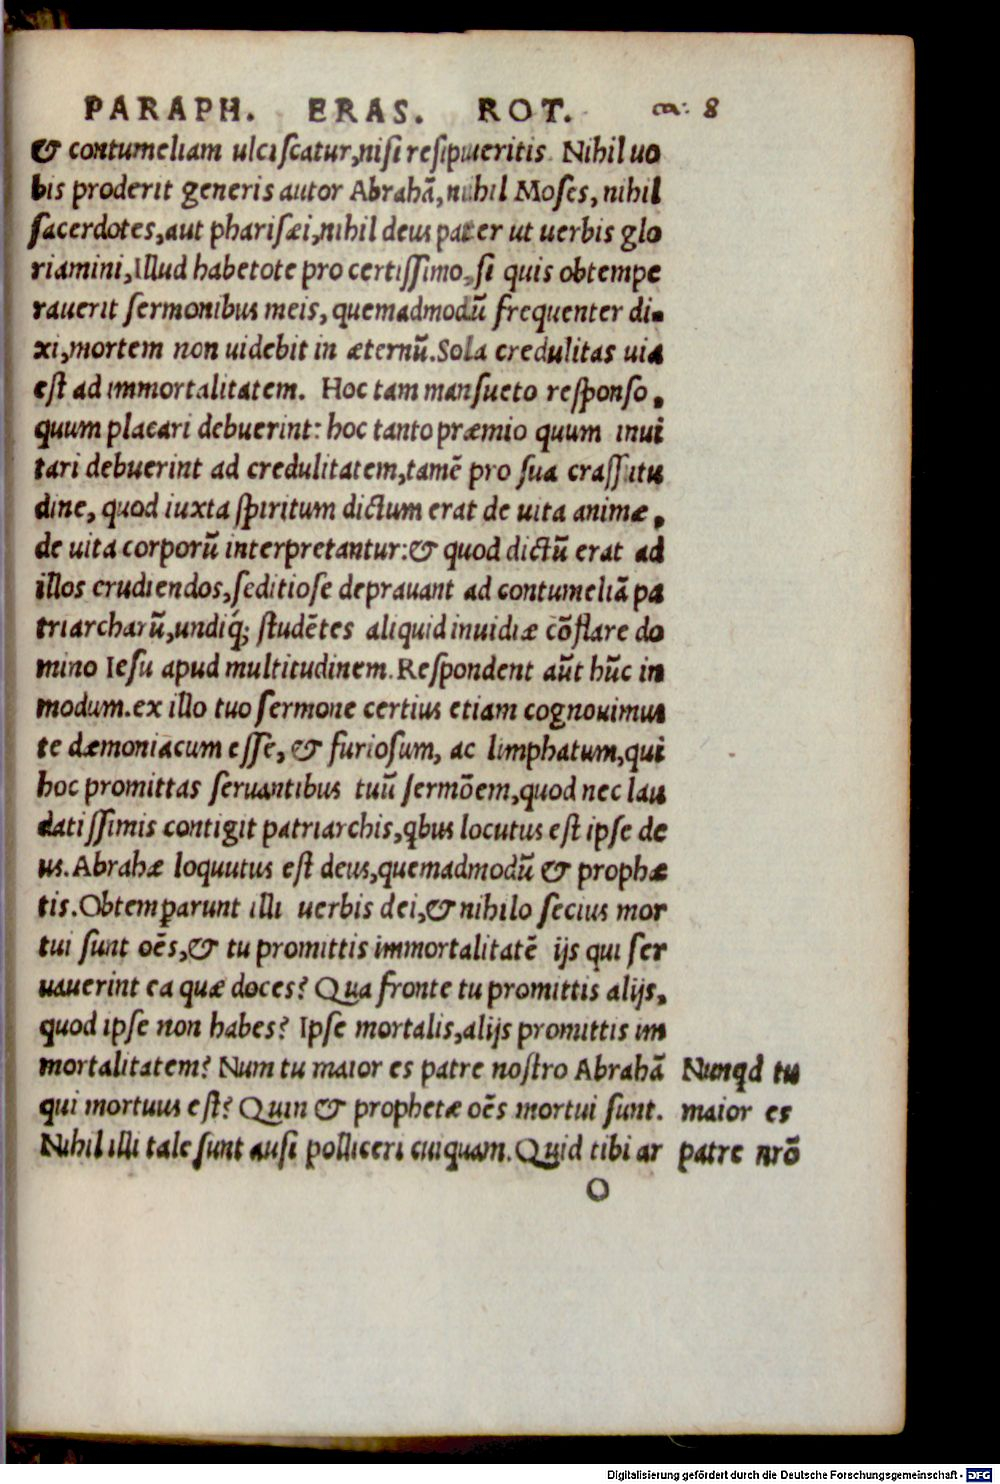 PARAPH. ERAS. ROT. ca: 8
& contumeliam ulciscatur, nisi resipiueritis. Nihil uo
bis proderit generis autor Abrahā, nihil Moses, nihil
sacerdotes, aut pharisæi, nihil deus pater ut uerbis glo
riamini, Illud habetote pro certissimo, si quis obtempe
rauerit sermonibus meis, quemadmodū frequenter di-
xi, mortem non uidebit in æternū. Sola credulitas uia
est ad immortalitatem. Hoc tam mansueto responso,
quum placari debuerint: hoc tanto præmio quum inui
tari debuerint ad credulitatem, tamē pro sua crassitu
dine, quod iuxta spiritum dictum erat de uita animæ,
de uita corporū interpretantur: & quod dictū erat ad
illos erudiendos, seditiose deprauant ad contumeliā pa
triarcharū, undiq́; studētes aliquid inuidiæ cōflare do
mino Iesu apud multitudinem. Respondent aūt hūc in
modum. ex illo tuo sermone certius etiam cognouimus
te dæmoniacum esse, & furiosum, ac limphatum, qui
hoc promittas seruantibus tuū sermōem, quod nec lau
datissimis contigit patriarchis, qbus locutus est ipse de
us. Abrahæ loquutus est deus, quemadmodū & prophæ
tis. Obtemꝑarunt illi uerbis dei, & nihilo secius mor
tui sunt oēs, & tu promittis immortalitatē ijs qui ser
uauerint ea quæ doces? Qua fronte tu promittis alijs,
quod ipse non habes? Ipse mortalis, alijs promittis im
mortalitatem? Num tu maior es patre nostro Abrahā
qui mortuus est? Quin & prophetæ oēs mortui sunt.
Nihil illi tale sunt ausi polliceri cuiquam. Quid tibi ar
Nunqd tu
maior es
patre nrō
O
Digitalisierung gefördert durch die Deutsche Forschungsgemeinschaft - DFG